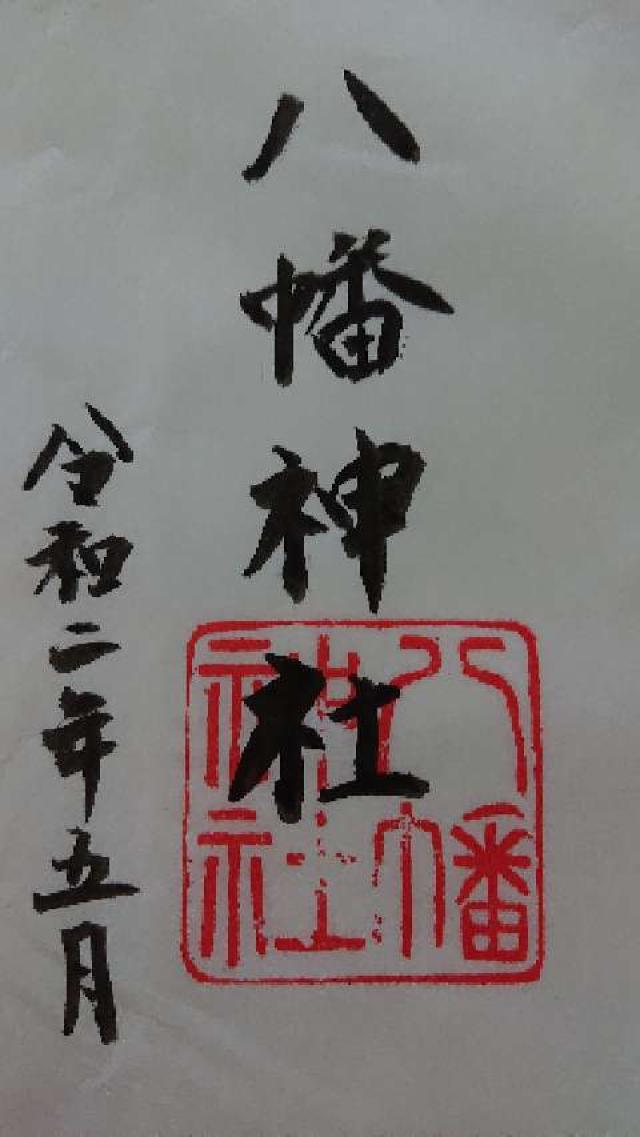 八幡神社
令和二年五月
八幡
神社